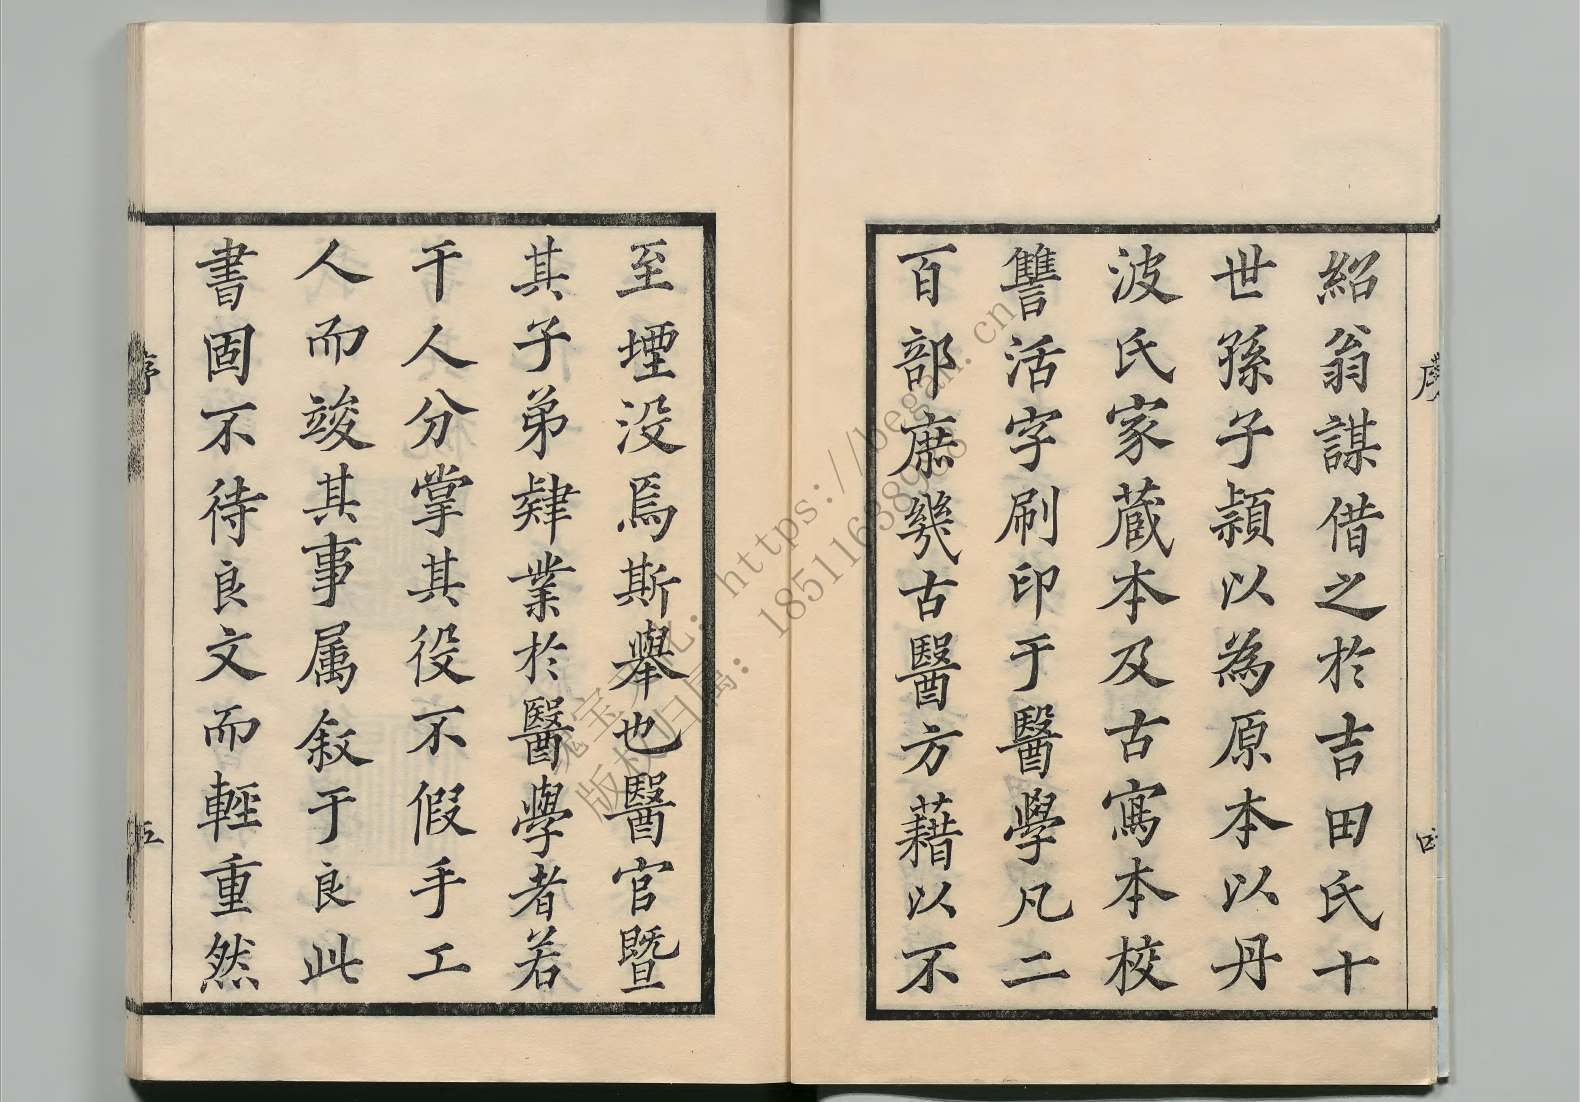 紹翁謀借之於吉田氏十
世孫子頴以為原本以丹
波氏家蔵本及古寫本校
讐活字刷印于醫學凡二
百部庶幾古醫方藉以不
至堙没焉斯舉也醫官暨
其子弟肄業於醫學者若
干人分掌其役不假手工
人而竣其事属叙于良此
書固不待良文而輕重然
序
五